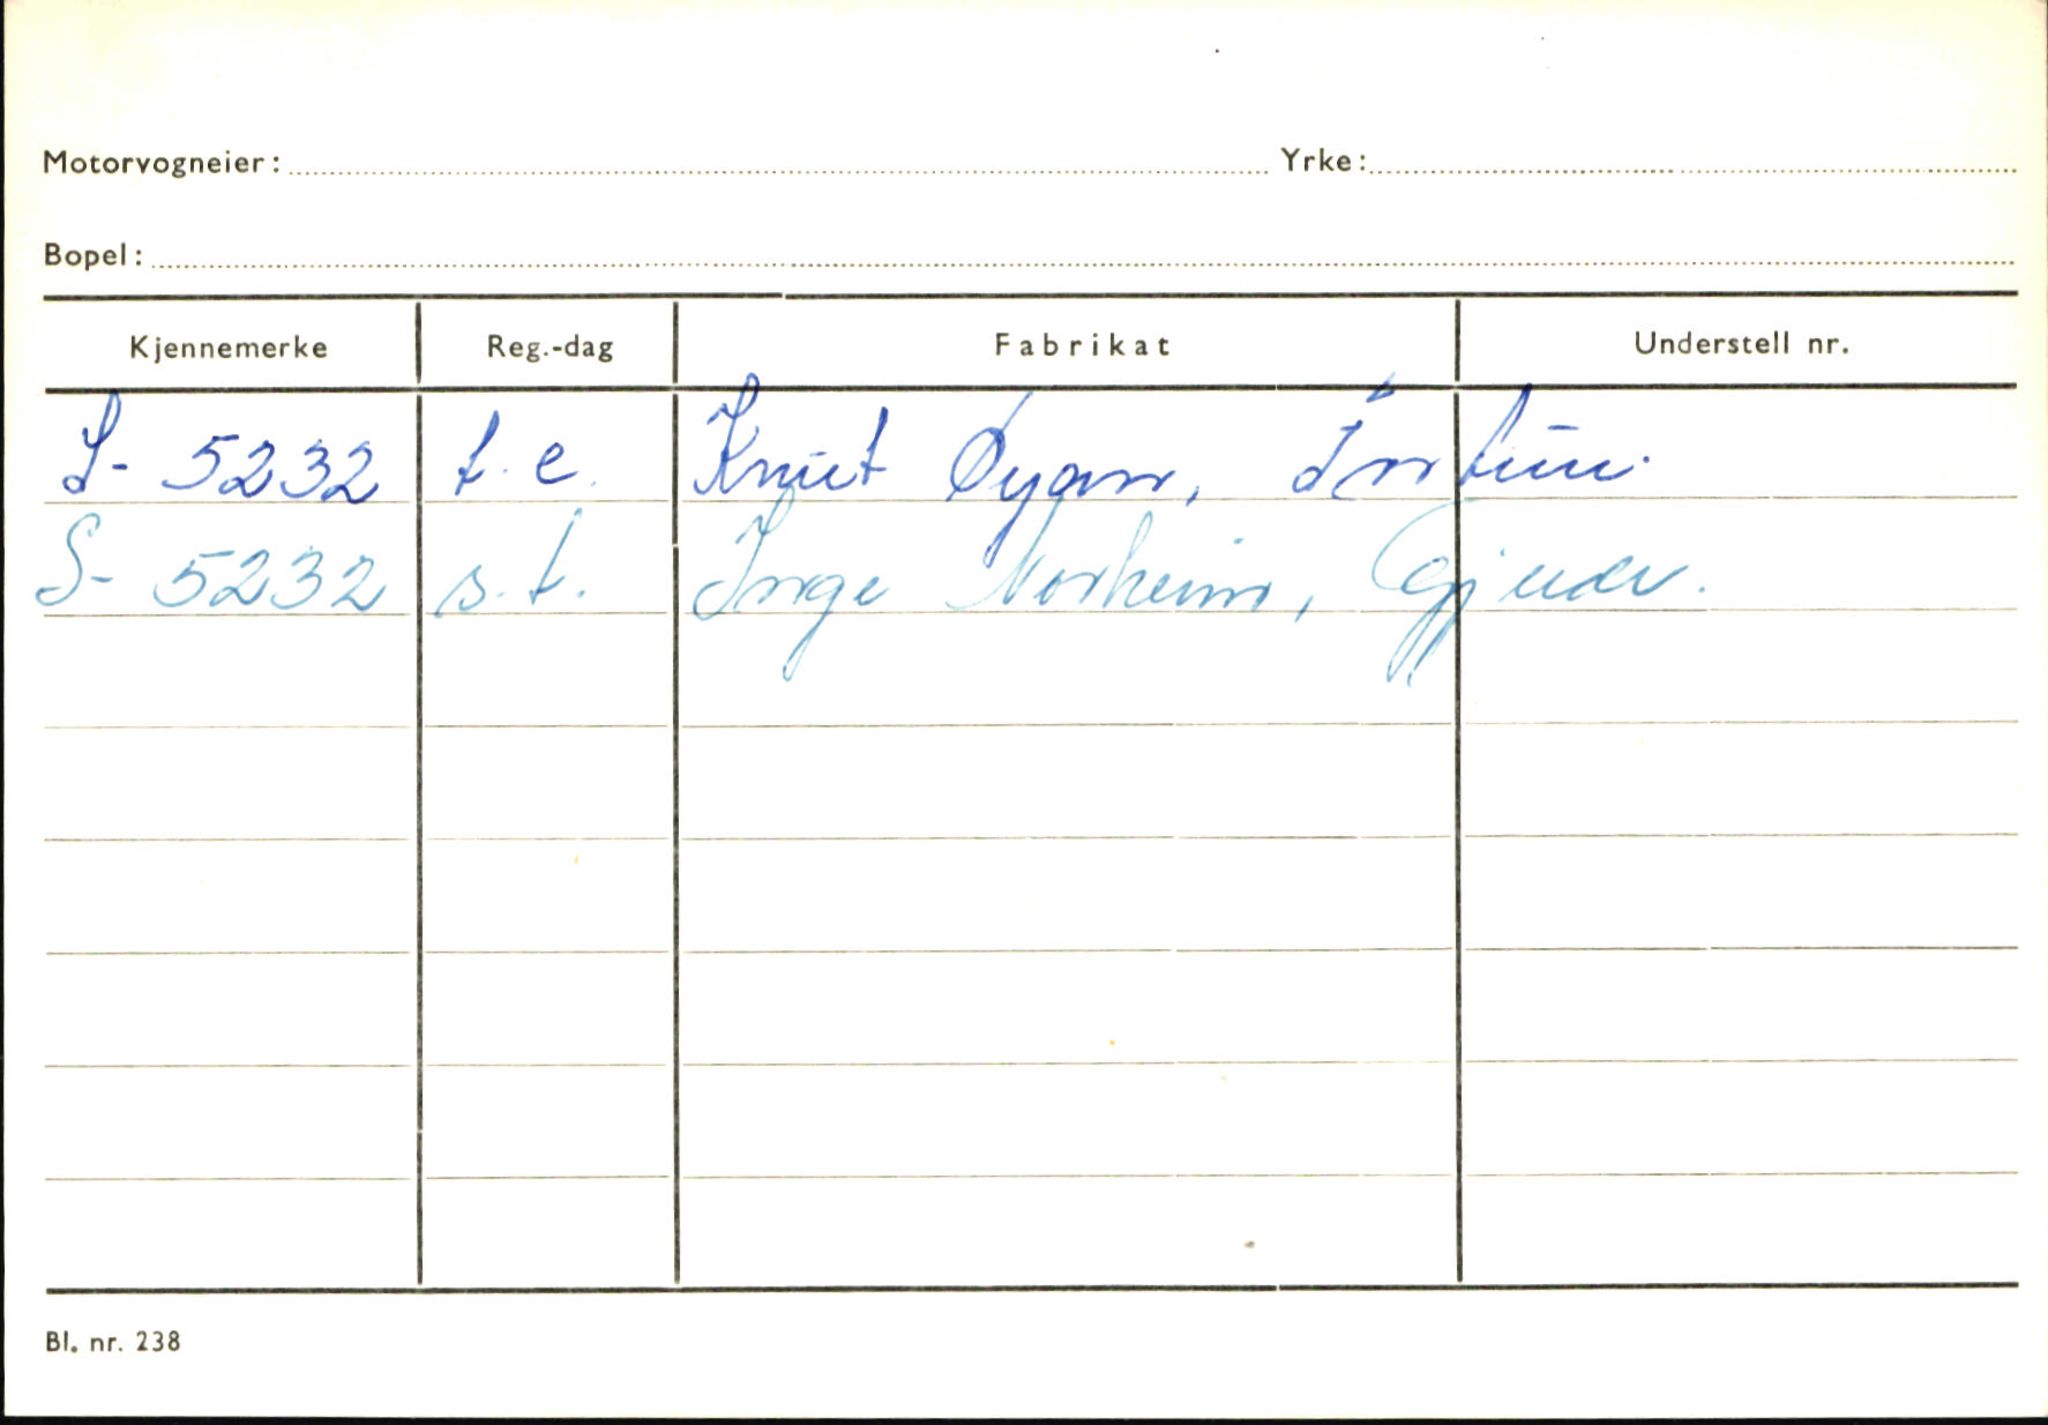 Motorvogneier: Yrke:
Bopel:
Kjennemerke Reg.-dag Fabrikat Understell nr.
S- 5232 t.e. Knut Øyan,
S- 5232 s.t. Inge Norheim,
Bl. nr. 238